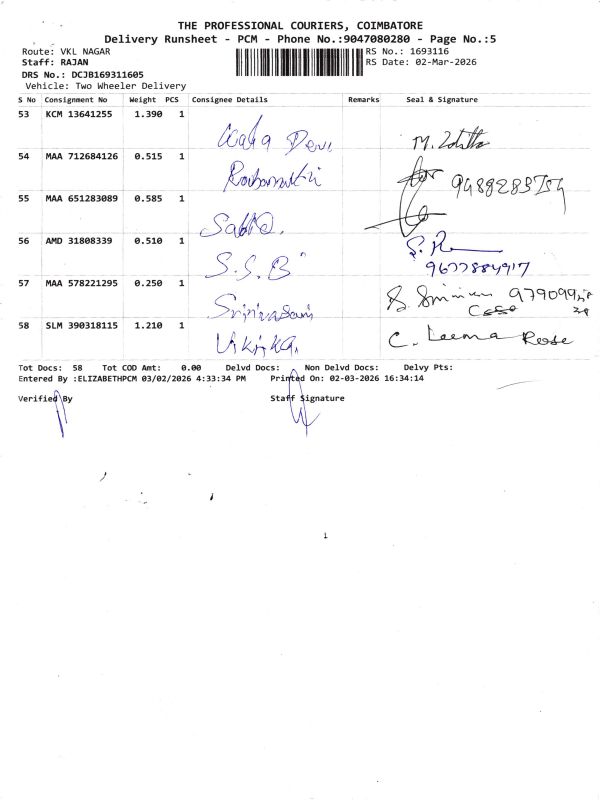 THE PROFESSIONAL COURIERS, COIMBATORE
Delivery Runsheet - PCM - Phone No.:9047080280 - Page No.:5
Route: VKL NAGAR RS No.: 1693116
Staff: RAJAN RS Date: 02-Mar-2026
DRS No.: DCJB169311605
Vehicle: Two Wheeler Delivery
S No Consignment No Weight PCS Consignee Details Remarks Seal & Signature
53 KCM 13641255 1.390 1
Devi
54 MAA 712684126 0.515 1
55 MAA 651283089 0.585 1
56 AMD 31808339 0.510 1
S.S.B
9677884917
57 MAA 578221295 0.250 1
Srinivasan
58 SLM 390318115 1.210 1
C. Leema Rose
Tot Docs: 58 Tot COD Amt: 0.00 Delvd Docs: Non Delvd Docs: Delvy Pts:
Entered By :ELIZABETHPCM 03/02/2026 4:33:34 PM Printed On: 02-03-2026 16:34:14
Verified By Staff Signature
1